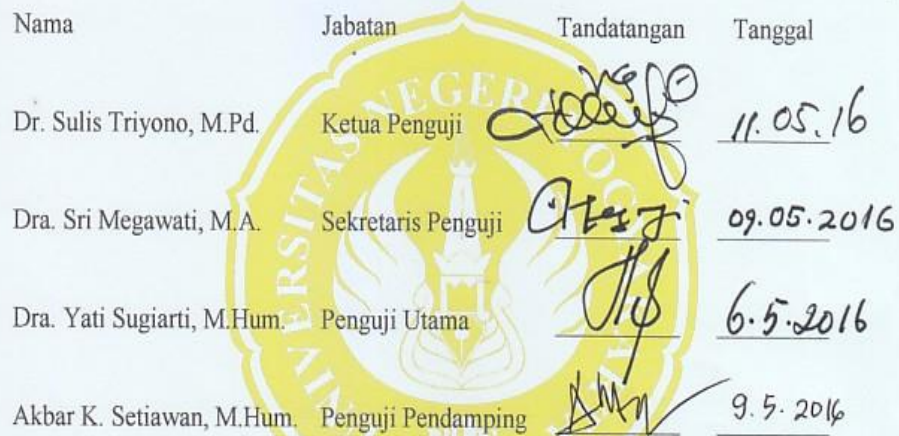 Nama Jabatan Tandatangan Tanggal
UNIVERSITAS NEGERI
Dr. Sulis Triyono, M.Pd. Ketua Penguji 11.05.16
Dra. Sri Megawati, M.A. Sekretaris Penguji 09.05.2016
Dra. Yati Sugiarti, M.Hum. Penguji Utama 6.5.2016
Akbar K. Setiawan, M.Hum. Penguji Pendamping 9.5.2016